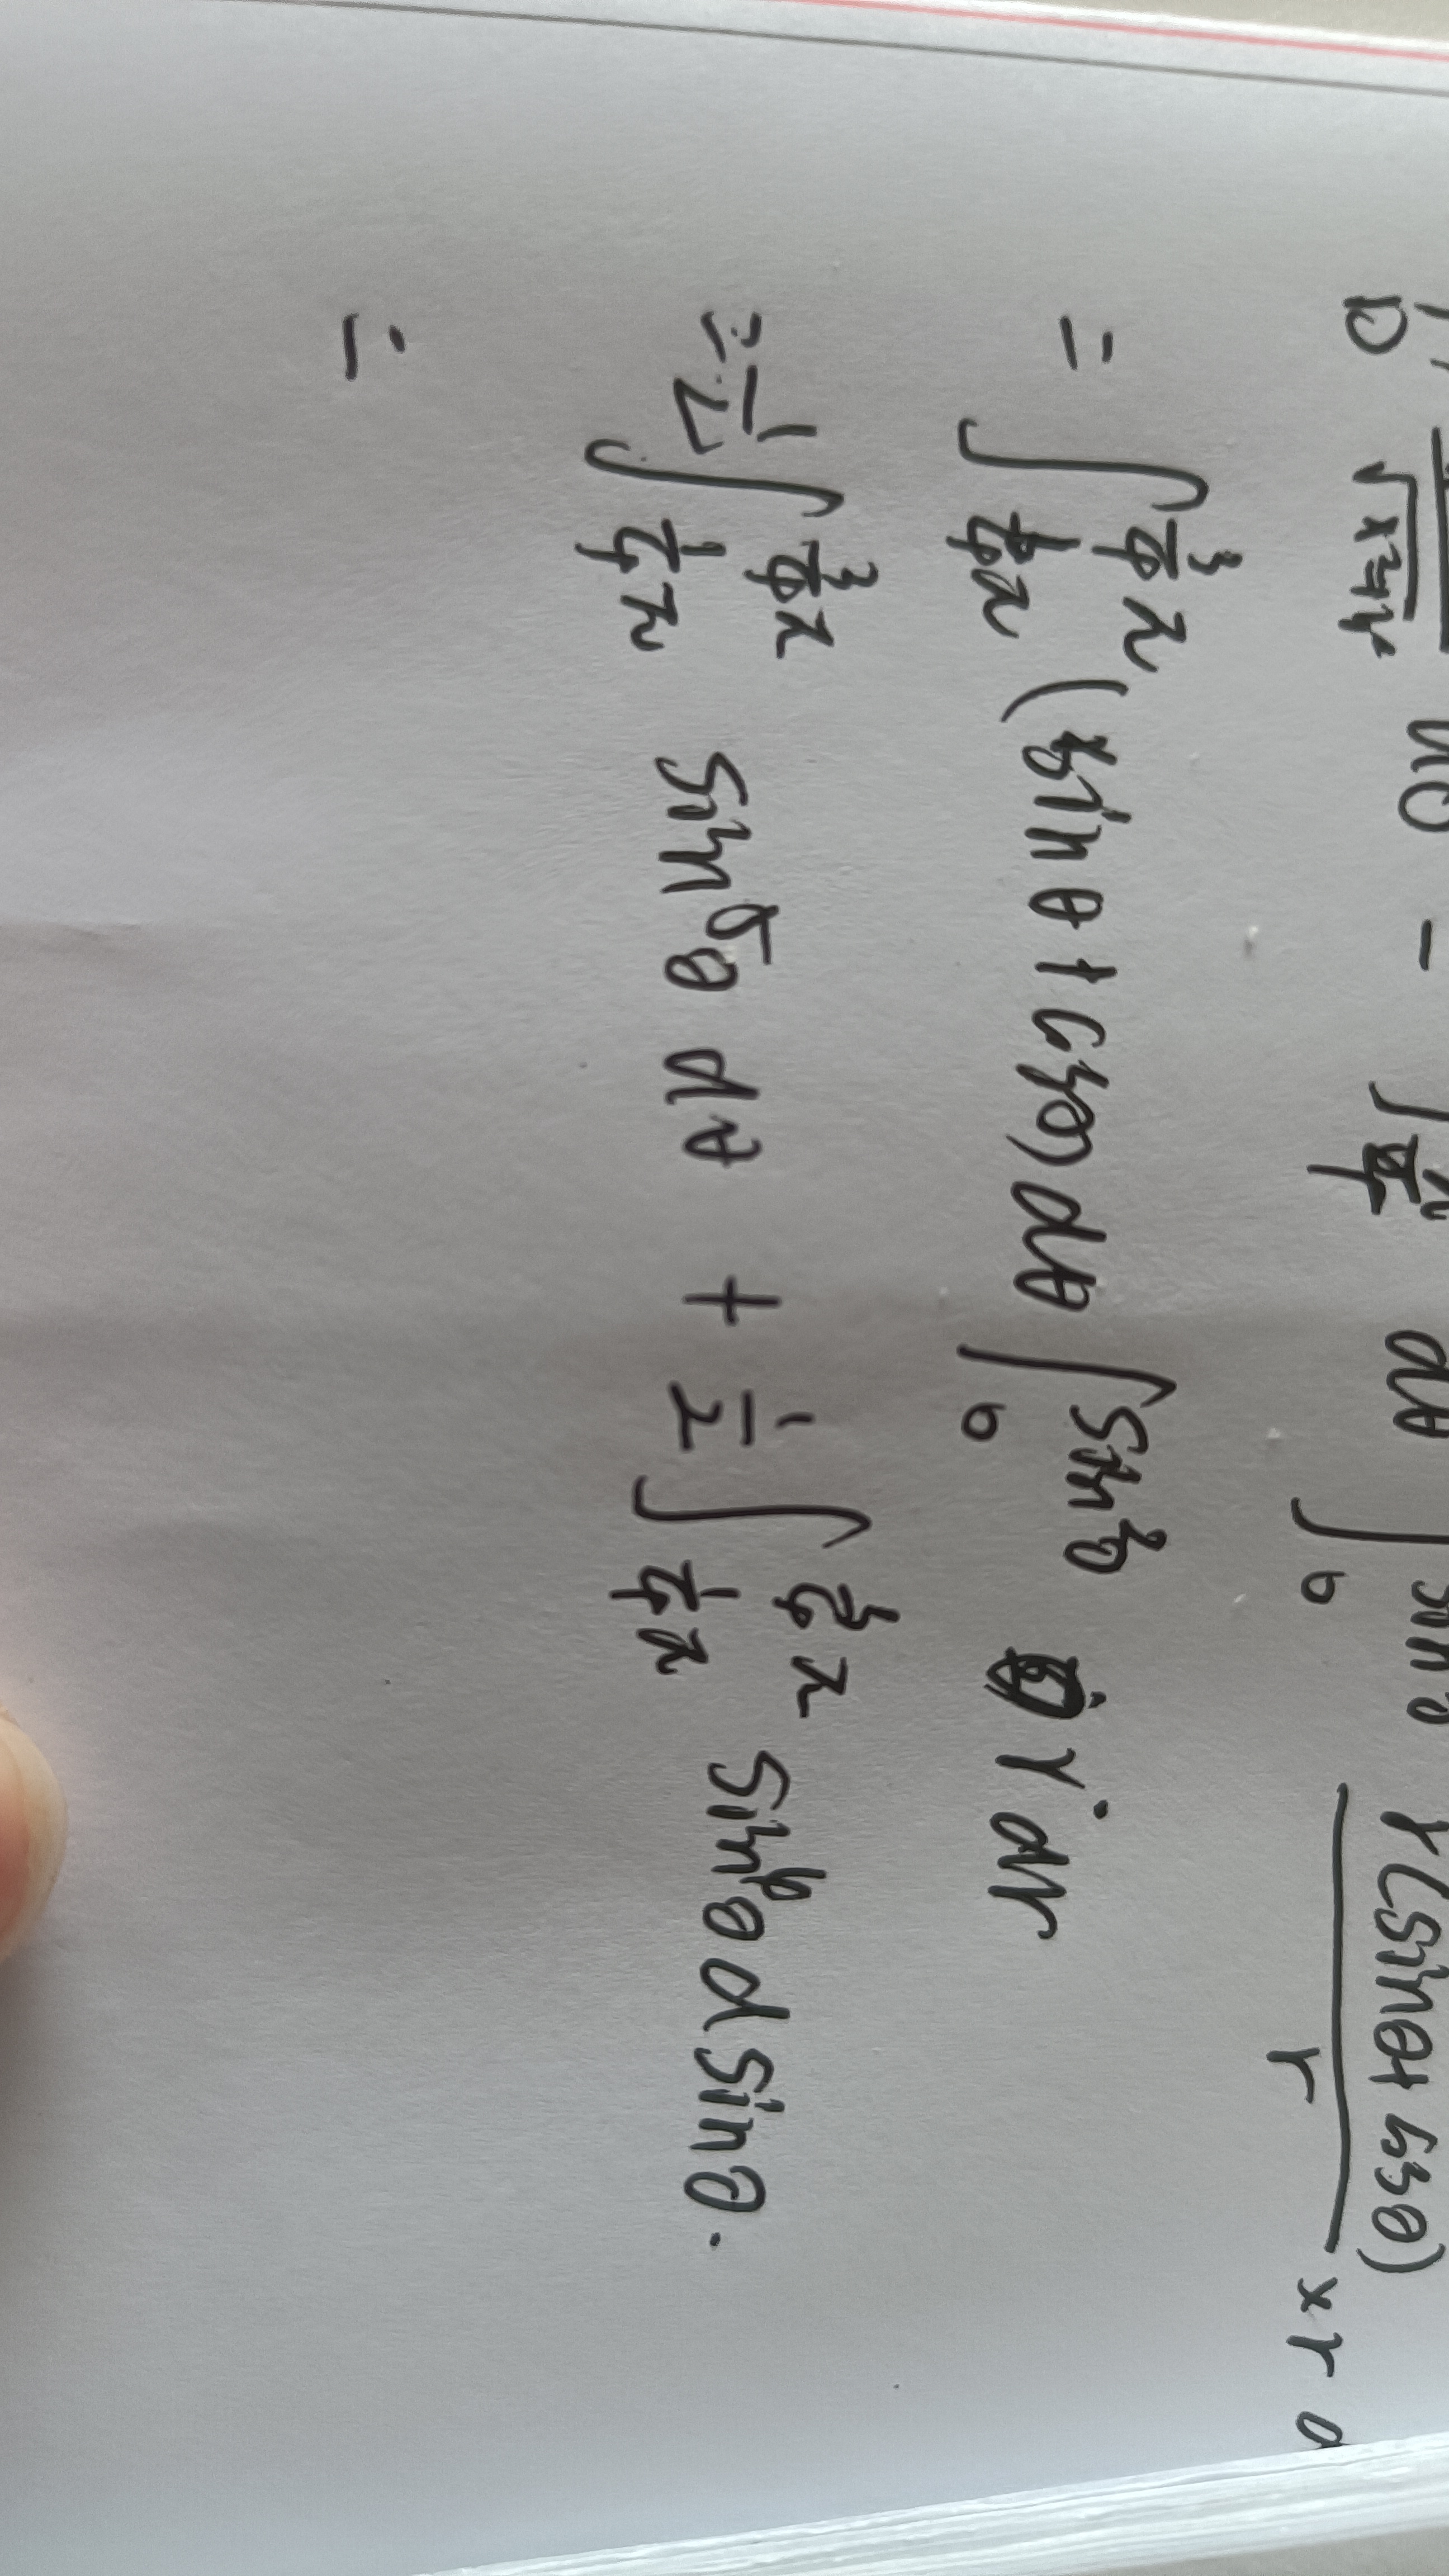 D √(x²+y²) dσ = ∫π/4 dθ ∫0 sin²θ r(sinθ+cosθ)/r × r d
= ∫_{1/4 π}^{3/4 π} (sinθ+cosθ) dθ ∫_0^{sin²θ} r dr
= 1/2 ∫_{1/4 π}^{3/4 π} sin⁵θ dθ + 1/2 ∫_{1/4 π}^{3/4 π} sin⁴θ d sinθ.
=